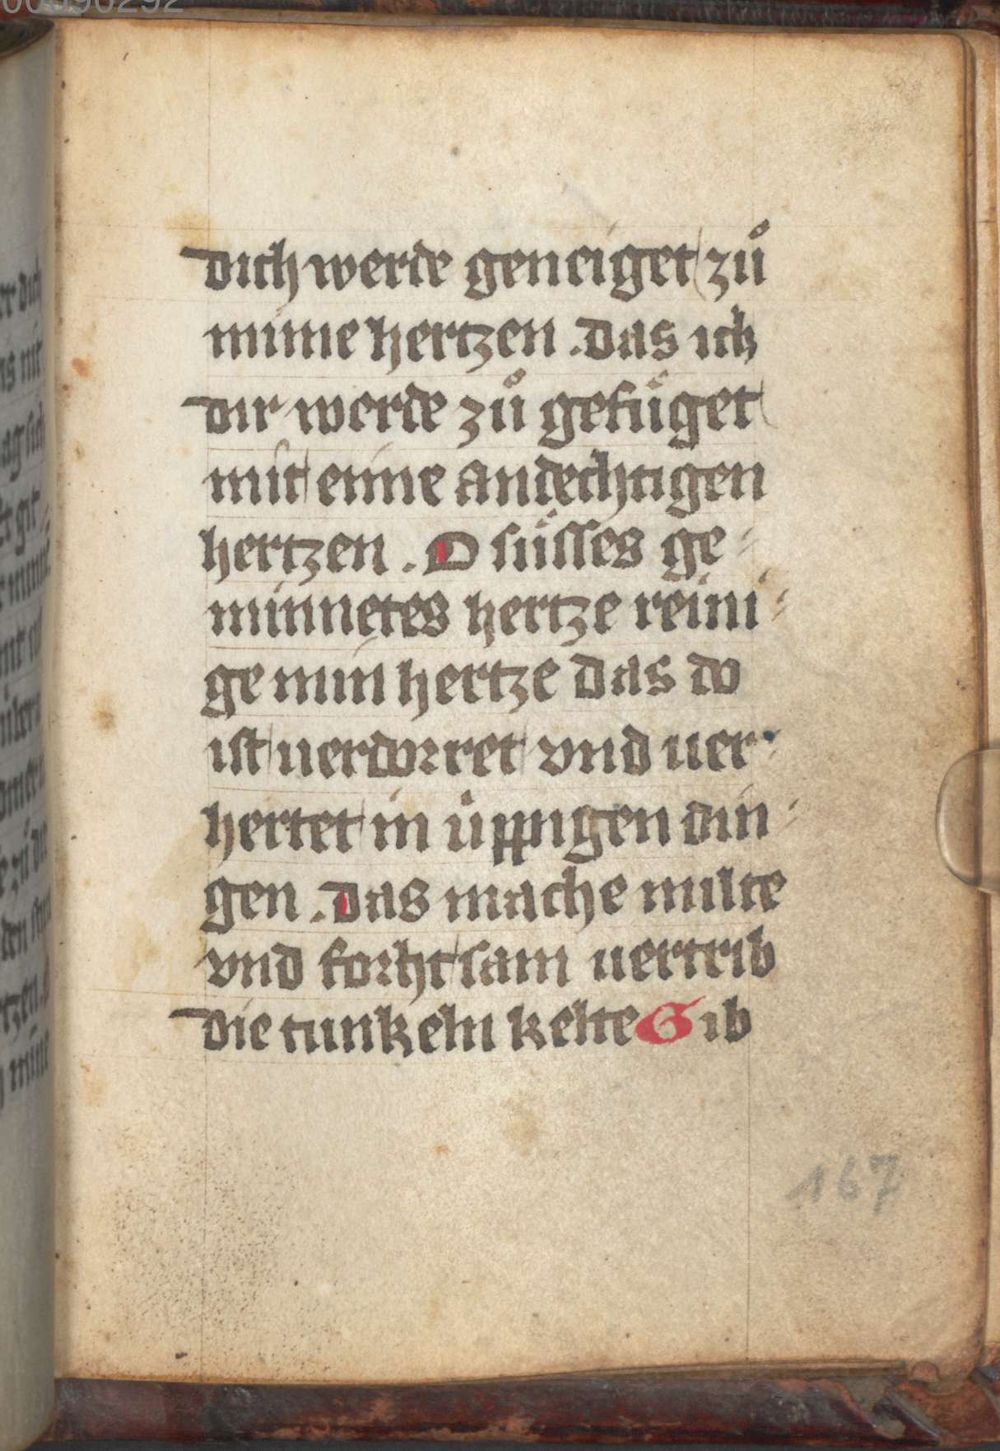 dich werde geneiget zů
mime hertzen . das ich
dir werde zů gefuͤget
mit eime andechtigen
hertzen . O suͤsses ge-
minnetes hertze reini-
ge min hertze das do
ist uerdorret vnd uer-
hertet in uͤppigen din-
gen . Das mache milte
vnd forhtsam uertrib
die tunkeln kelte Gib
167